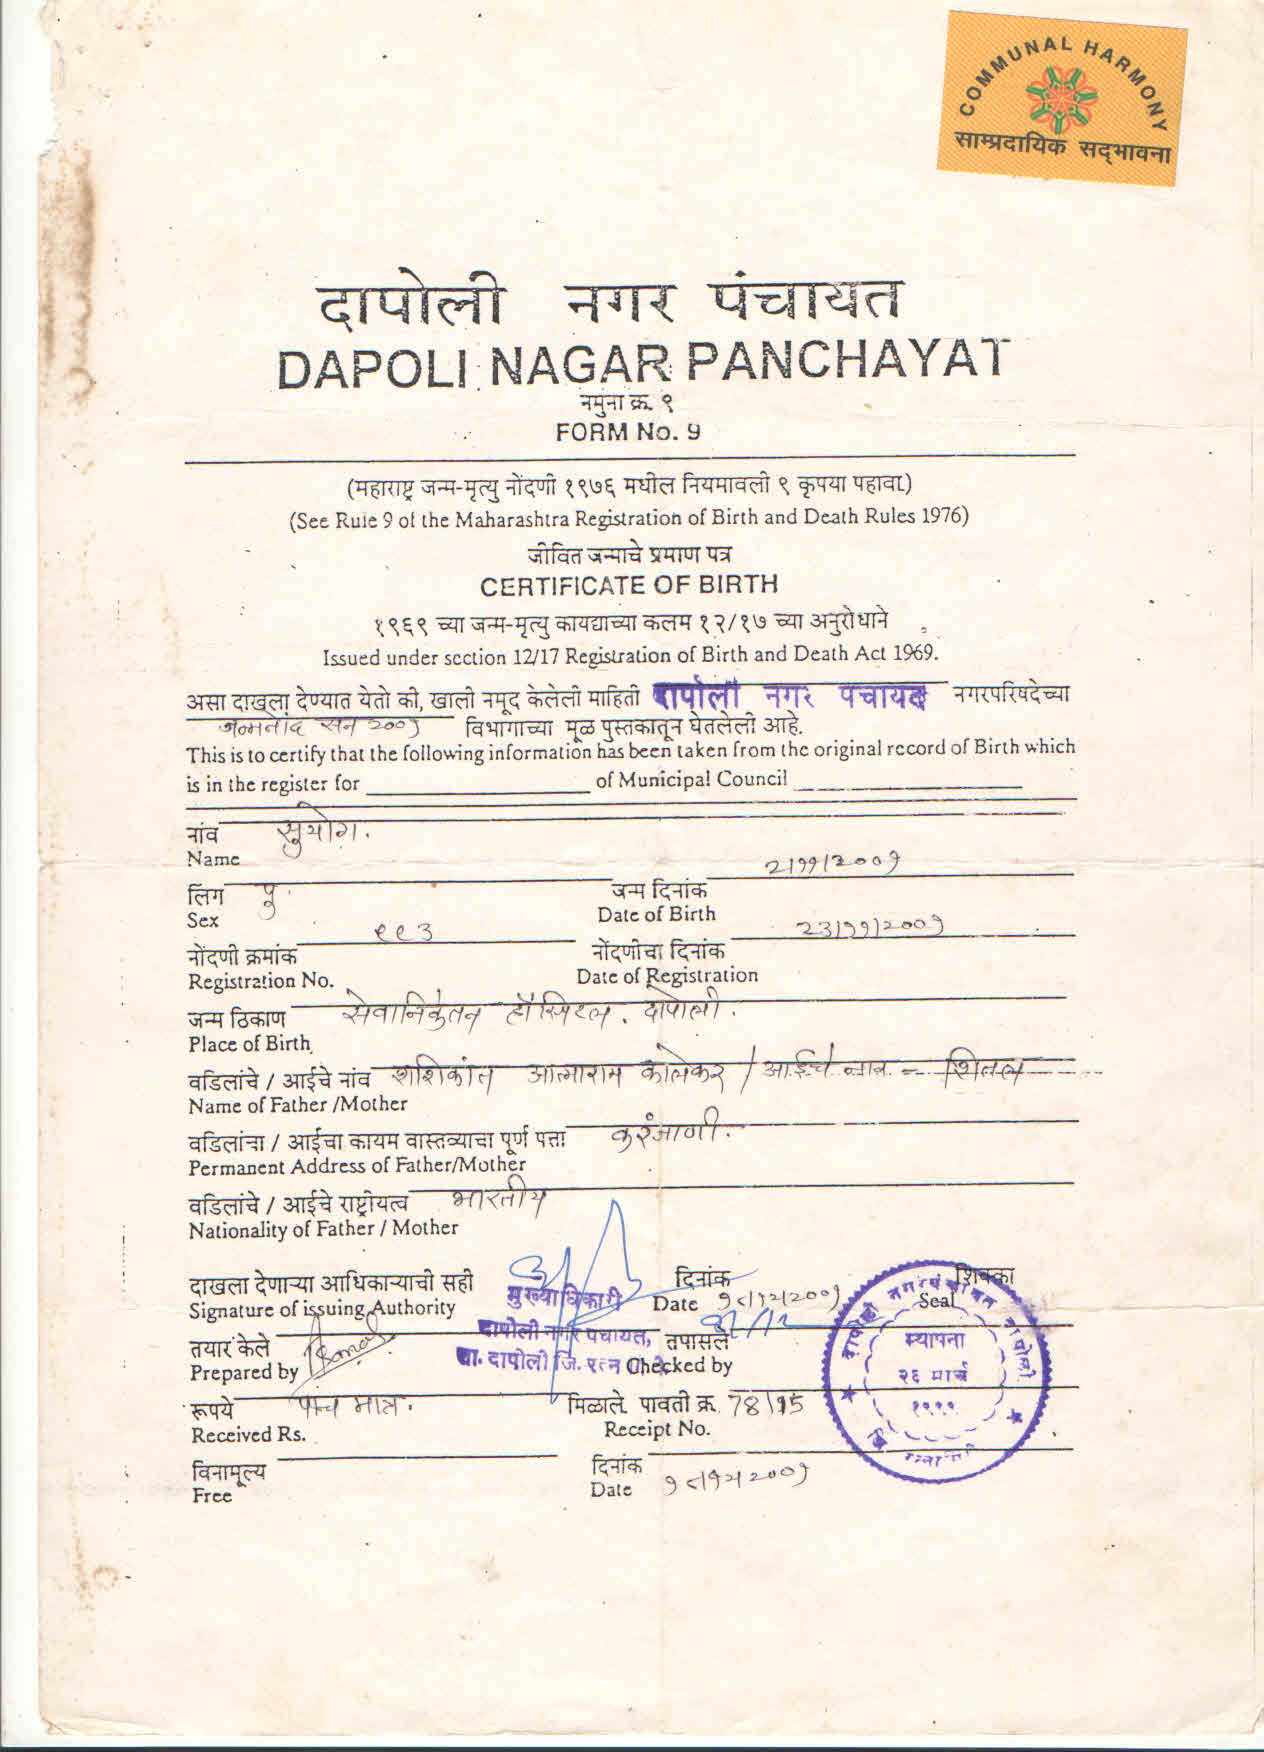 COMMUNAL HARMONY
साम्प्रदायिक सद्भावना
दापोली नगर पंचायत
DAPOLI NAGAR PANCHAYAT
नमुना क्र. ९
FORM No. 9
(महाराष्ट्र जन्म-मृत्यु नोंदणी १९७६ मधील नियमावली ९ कृपया पहावा.)
(See Rule 9 of the Maharashtra Registration of Birth and Death Rules 1976)
जीवित जन्माचे प्रमाण पत्र
CERTIFICATE OF BIRTH
१९६९ च्या जन्म-मृत्यु कायद्याच्या कलम १२/१७ च्या अनुरोधाने
Issued under section 12/17 Registration of Birth and Death Act 1969.
असा दाखला देण्यात येतो की, खाली नमूद केलेली माहिती दापोली नगर पंचायत नगरपरिषदेच्या
जन्मनोंद सन २००१ विभागाच्या मूळ पुस्तकातून घेतलेली आहे.
This is to certify that the following information has been taken from the original record of Birth which
is in the register for of Municipal Council
नांव सुयोग.
Name
२/११/२००१
लिंग पु. जन्म दिनांक
Sex Date of Birth
९९३ २३/११/२००१
नोंदणी क्रमांक नोंदणीचा दिनांक
Registration No. Date of Registration
जन्म ठिकाण सेवानिकेतन हॉस्पिटल. दापोली.
Place of Birth
वडिलांचे / आईचे नांव शशिकांत आत्माराम कालेकर / आईचे नाव - शितल
Name of Father /Mother
वडिलांचा / आईचा कायम वास्तव्याचा पूर्ण पत्ता कुरंजाणी.
Permanent Address of Father/Mother
वडिलांचे / आईचे राष्ट्रीयत्व भारतीय
Nationality of Father / Mother
दाखला देणाऱ्या आधिकाऱ्याची सही दिनांक शिक्का
Signature of issuing Authority मुख्याधिकारी Date Seal
तयार केले दापोली नगर पंचायत, तपासले
Prepared by ता. दापोली जि. रत्ना Checked by
रूपये पांच मात्र. मिळाले. पावती क्र. 78/15
Received Rs. Receipt No.
विनामूल्य दिनांक
Free Date
दापोली नगरपंचायत दापोली
स्थापना
२६ मार्च